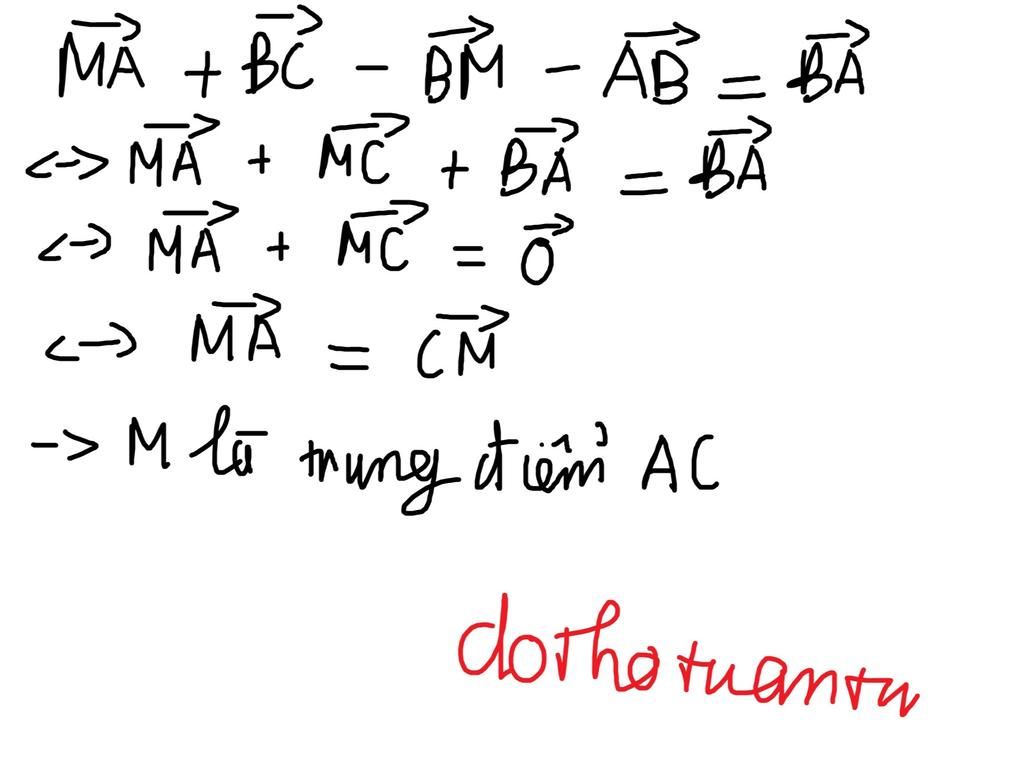 $\overrightarrow{MA} + \overrightarrow{BC} - \overrightarrow{BM} - \overrightarrow{AB} = \overrightarrow{BA}$
<-> $\overrightarrow{MA} + \overrightarrow{MC} + \overrightarrow{BA} = \overrightarrow{BA}$
<-> $\overrightarrow{MA} + \overrightarrow{MC} = \overrightarrow{0}$
<-> $\overrightarrow{MA} = \overrightarrow{CM}$
-> M là trung điểm AC
dothotuantu